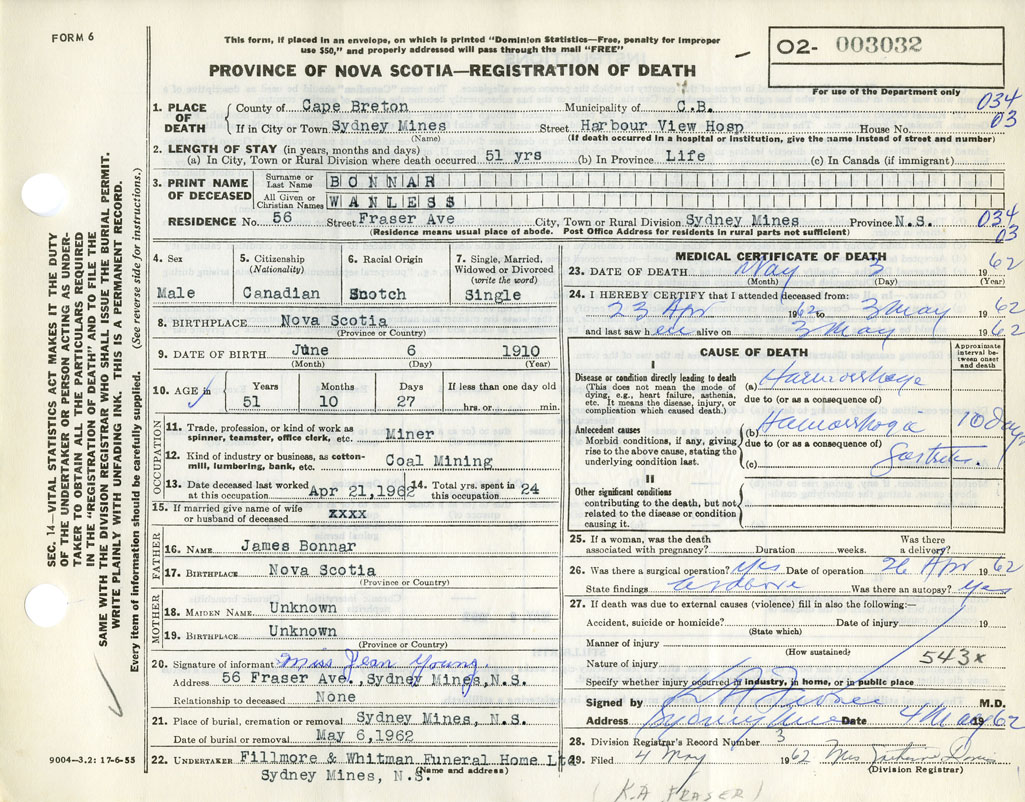 FORM 6
This form, if placed in an envelope, on which is printed "Dominion Statistics—Free, penalty for improper
use $50," and properly addressed will pass through the mail "FREE"
O2- 003032
PROVINCE OF NOVA SCOTIA—REGISTRATION OF DEATH
For use of the Department only
034
03
1. PLACE OF DEATH
County of Cape Breton Municipality of C.B.
If in City or Town Sydney Mines Street Harbour View Hosp House No.
(Name) (If death occurred in a hospital or institution, give the name instead of street and number)
2. LENGTH OF STAY (in years, months and days)
(a) In City, Town or Rural Division where death occurred 51 yrs (b) In Province Life (c) In Canada (if immigrant)
3. PRINT NAME OF DECEASED
Surname or Last Name BONNAR
All Given or Christian Names WANLESS
RESIDENCE No. 56 Street Fraser Ave City, Town or Rural Division Sydney Mines Province N.S.
034
03
(Residence means usual place of abode. Post Office Address for residents in rural parts not sufficient)
4. Sex
Male
5. Citizenship
(Nationality)
Canadian
6. Racial Origin
Scotch
7. Single, Married,
Widowed or Divorced
(write the word)
Single
8. BIRTHPLACE Nova Scotia
(Province or Country)
9. DATE OF BIRTH June 6 1910
(Month) (Day) (Year)
10. AGE in
Years Months Days If less than one day old
51 10 27 hrs. or min.
OCCUPATION
11. Trade, profession, or kind of work as
spinner, teamster, office clerk, etc. Miner
12. Kind of industry or business, as cotton-
mill, lumbering, bank, etc. Coal Mining
13. Date deceased last worked
at this occupation Apr 21,1962
14. Total yrs. spent in
this occupation 24
15. If married give name of wife
or husband of deceased xxxx
FATHER
16. NAME James Bonnar
17. BIRTHPLACE Nova Scotia
(Province or Country)
MOTHER
18. MAIDEN NAME Unknown
19. BIRTHPLACE Unknown
(Province or Country)
20. Signature of informant Miss Jean Young.
Address 56 Fraser Ave., Sydney Mines, N.S.
Relationship to deceased None
21. Place of burial, cremation or removal Sydney Mines, N.S.
Date of burial or removal May 6,1962
22. UNDERTAKER Fillmore & Whitman Funeral Home Ltd
Sydney Mines, N.S.
(Name and address)
MEDICAL CERTIFICATE OF DEATH
23. DATE OF DEATH May 3 19 62
(Month) (Day) (Year)
24. I HEREBY CERTIFY that I attended deceased from:
23 Apr 1962 to 3 May 19 62
and last saw h alive on 3 May 1962
CAUSE OF DEATH
Approximate
interval be-
tween onset
and death
I
Disease or condition directly leading to death
(This does not mean the mode of
dying, e.g., heart failure, asthenia,
etc. It means the disease, injury, or
complication which caused death.)
(a) Haemorrhage
due to (or as a consequence of)
Antecedent causes
Morbid conditions, if any, giving
rise to the above cause, stating the
underlying condition last.
(b) 10 Days
due to (or as a consequence of)
(c)
II
Other significant conditions
contributing to the death, but not
related to the disease or condition
causing it.
25. If a woman, was the death
associated with pregnancy? Duration weeks. Was there
a delivery?
26. Was there a surgical operation? Yes Date of operation 26 Apr 1962
State findings as above Was there an autopsy? Yes
27. If death was due to external causes (violence) fill in also the following:—
Accident, suicide or homicide? Date of injury 19
(State which)
Manner of injury
(How sustained)
Nature of injury 543x
Specify whether injury occurred in industry, in home, or in public place
Signed by M.D.
Address Sydney Mines Date 4 May 1962
28. Division Registrar's Record Number 3
29. Filed 4 May 1962 Mrs
(Division Registrar)
(K.A FRASER)
SEC. 14—VITAL STATISTICS ACT MAKES IT THE DUTY
OF THE UNDERTAKER OR PERSON ACTING AS UNDER-
TAKER TO OBTAIN ALL THE PARTICULARS REQUIRED
IN THE "REGISTRATION OF DEATH" AND TO FILE THE
SAME WITH THE DIVISION REGISTRAR WHO SHALL ISSUE THE BURIAL PERMIT.
WRITE PLAINLY WITH UNFADING INK. THIS IS A PERMANENT RECORD.
Every item of information should be carefully supplied. (See reverse side for instructions.)
9004—3.2: 17-6-55